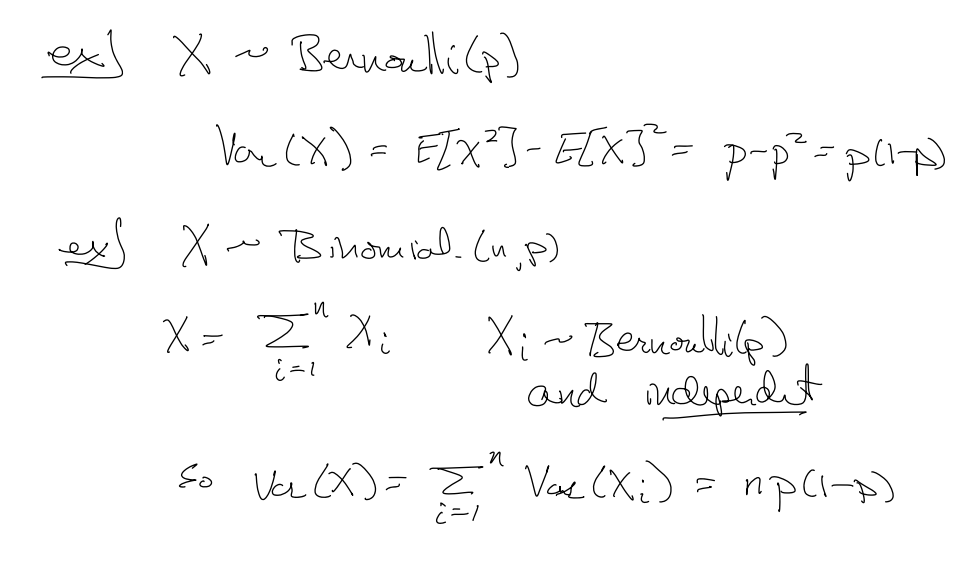 ex) X ~ Bernoulli(p)
Var(X) = E[X²] - E[X]² = p-p² = p(1-p)
ex) X ~ Binomial(n,p)
X = ∑_{i=1}^{n} X_i    X_i ~ Bernoulli(p)
and independt
So Var(X) = ∑_{i=1}^{n} Var(X_i) = np(1-p)